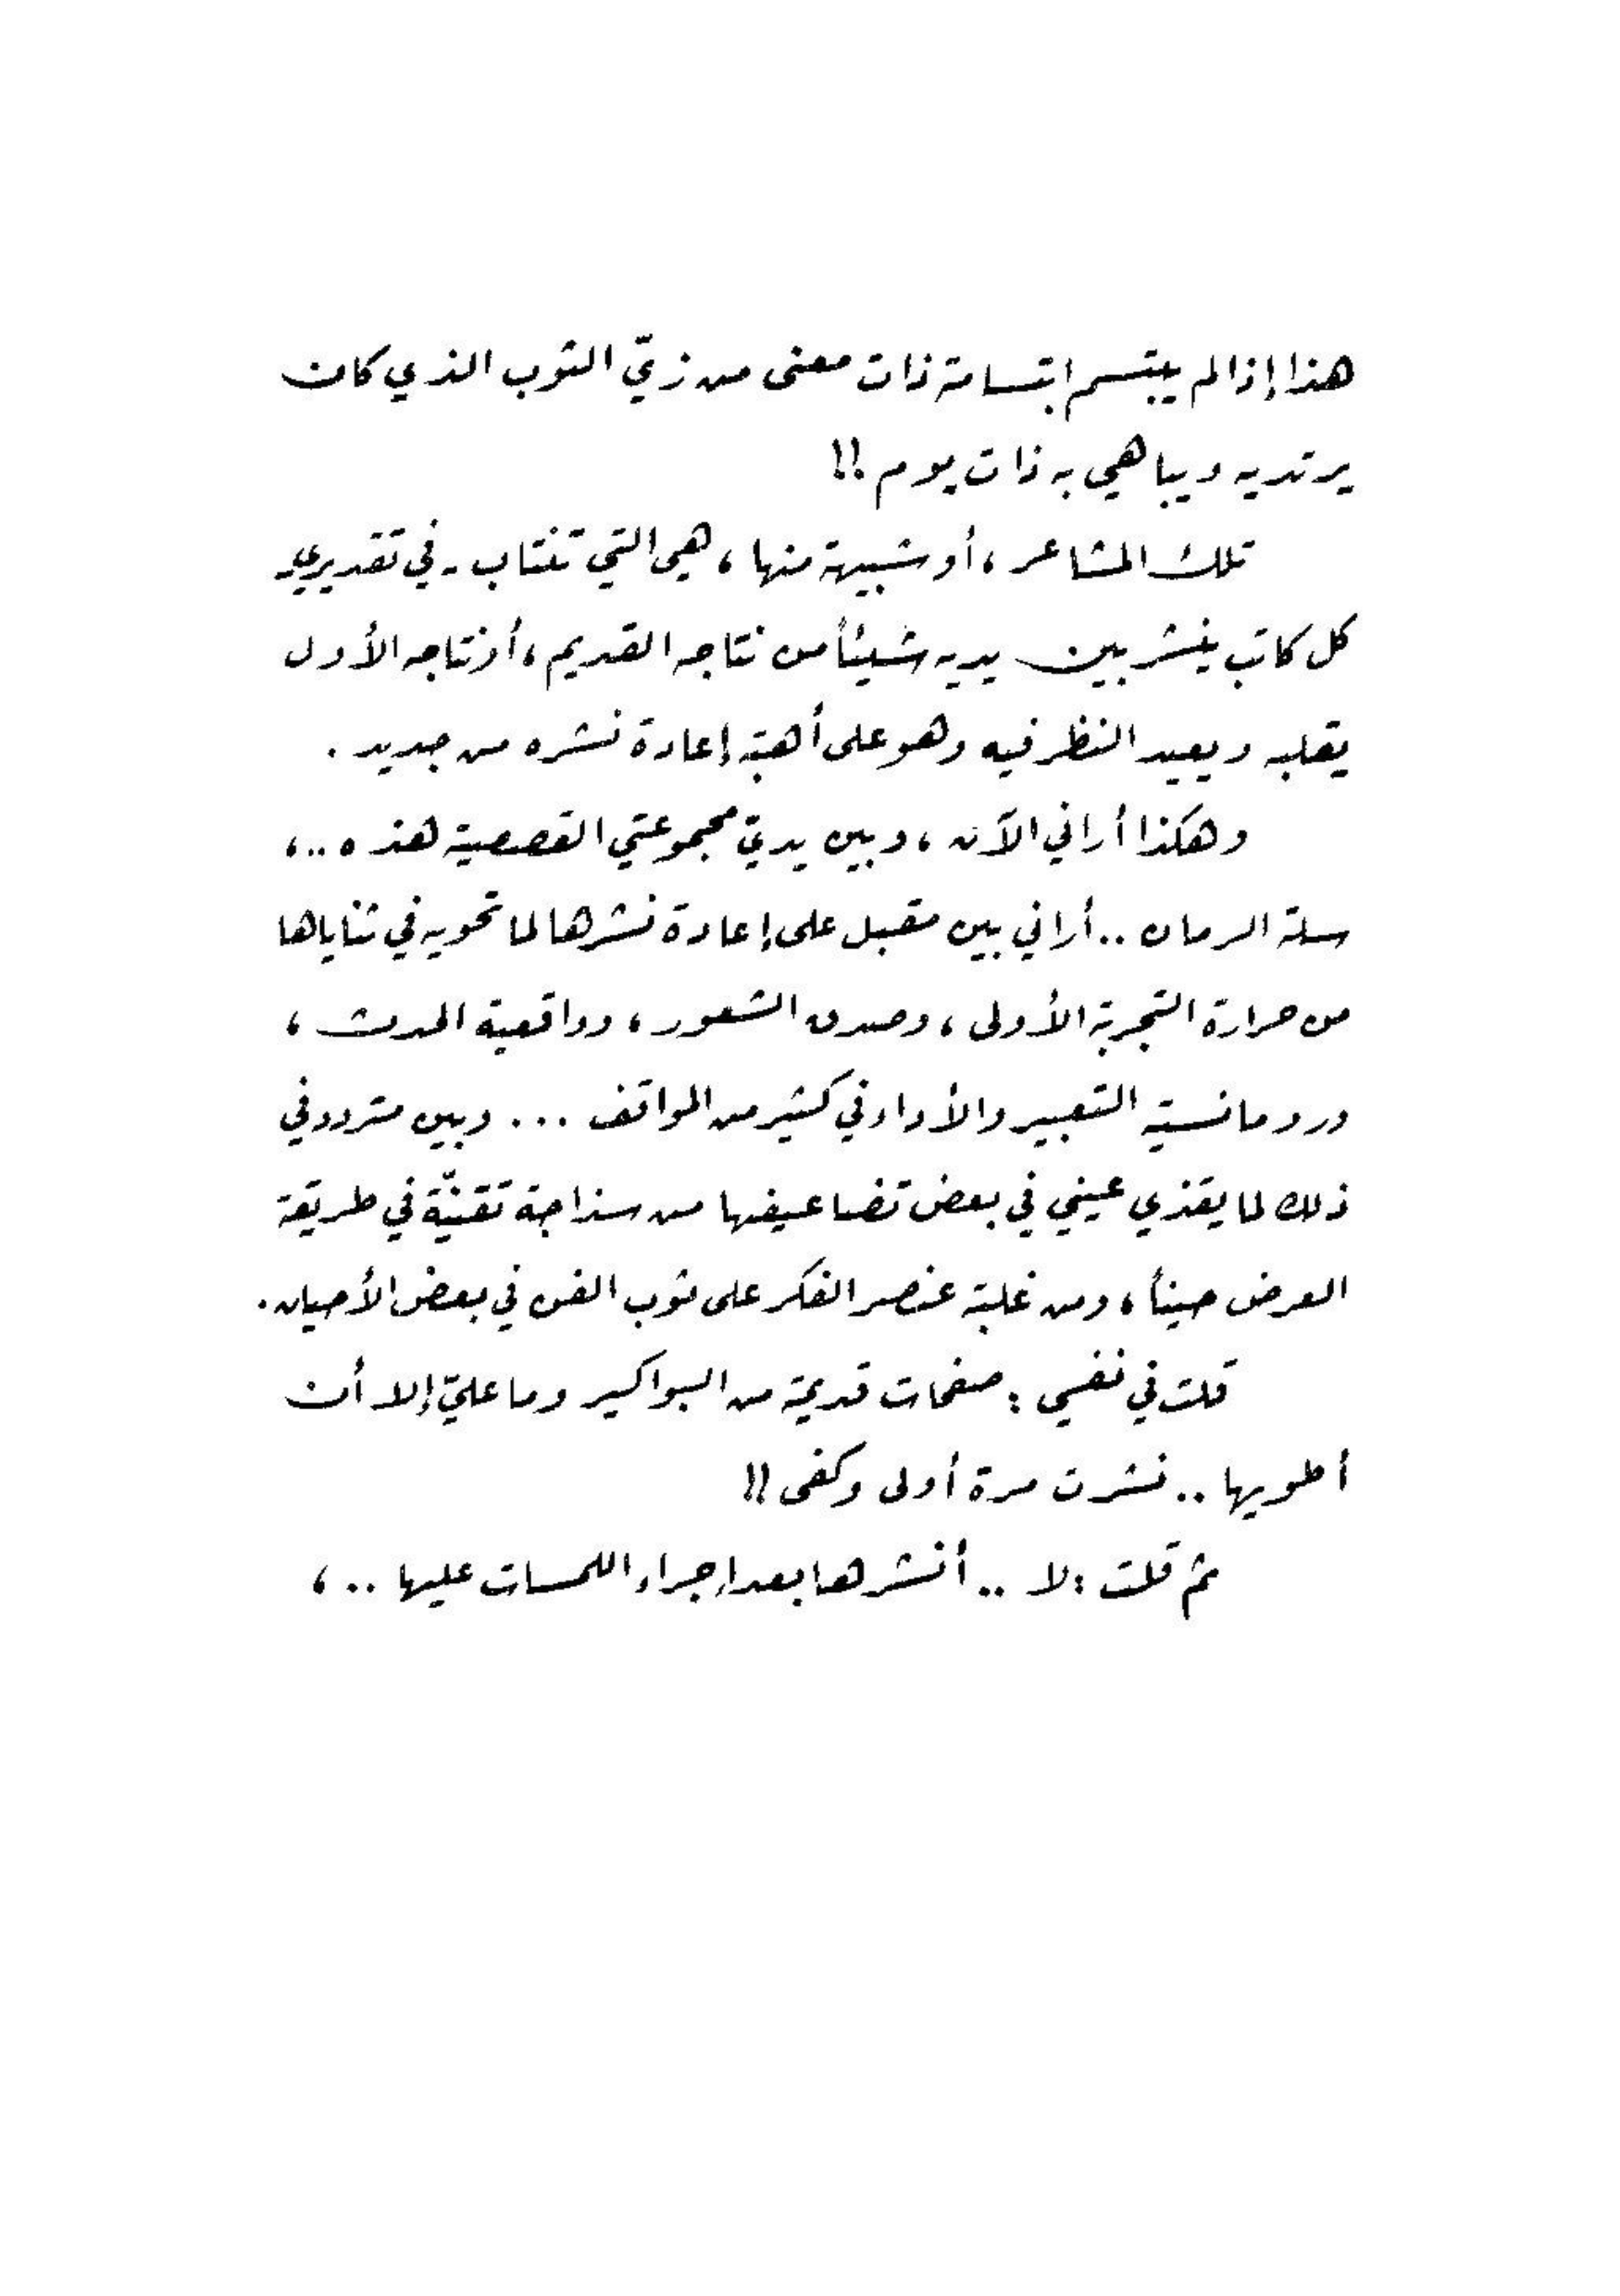 هذا إذا لم يبتسم ابتسامة ذات معنى من زيّ الثوب الذي كان
يرتديه ويباهي به ذات يوم !!
تلك المشاعر ، أو شبيهة منها ، هي التي تنتاب - في تقديري -
كل كاتب ينشر بين يديه شيئاً من نتاجه القديم ، أو نتاجه الأول
يقلبه ويعيد النظر فيه وهو على أهبة إعادة نشره من جديد .
وهكذا أراني الآن ، وبين يديّ مجموعتي القصصية هذه .. ،
سلة الرمان .. أراني بين مقبل على إعادة نشرها لما تحويه في ثناياها
من حرارة التجربة الأولى ، وصدق الشعور ، وواقعية الحدث ،
ورومانسية التعبير والأداء في كثير من المواقف ... وبين متردد في
ذلك لما يقذي عيني في بعض تضاعيفها من سذاجة تقنيّة في طريقة
العرض حيناً ، ومن غلبة عنصر الفكر على ثوب الفن في بعض الأحيان .
قلت في نفسي : صفحات قديمة من البواكير وما عليّ إلا أن
أطويها .. نشرت مرة أولى وكفى !!
ثم قلت : لا .. أنشرها بعد إجراء اللمسات عليها .. ،